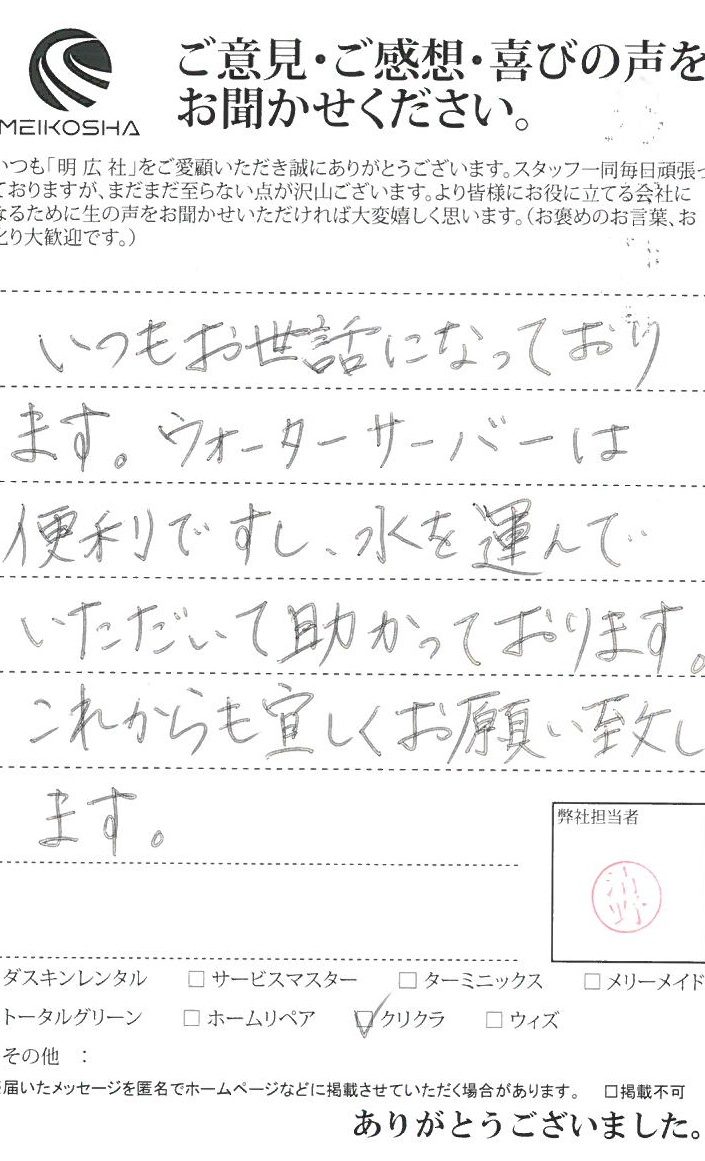 MEIKOSHA
ご意見・ご感想・喜びの声を
お聞かせください。
いつも「明広社」をご愛顧いただき誠にありがとうございます。スタッフ一同毎日頑張っ
ておりますが、まだまだ至らない点が沢山ございます。より皆様にお役に立てる会社に
なるために生の声をお聞かせいただければ大変嬉しく思います。（お褒めのお言葉、お
叱り大歓迎です。）
いつもお世話になっており
ます。ウォーターサーバーは
便利ですし、水を運んで
いただいて助かっております。
これからも宜しくお願い致し
ます。
弊社担当者
ダスキンレンタル □サービスマスター □ターミニックス □メリーメイド
トータルグリーン □ホームリペア □クリクラ □ウィズ
その他 ：
※届いたメッセージを匿名でホームページなどに掲載させていただく場合があります。 □掲載不可
ありがとうございました。